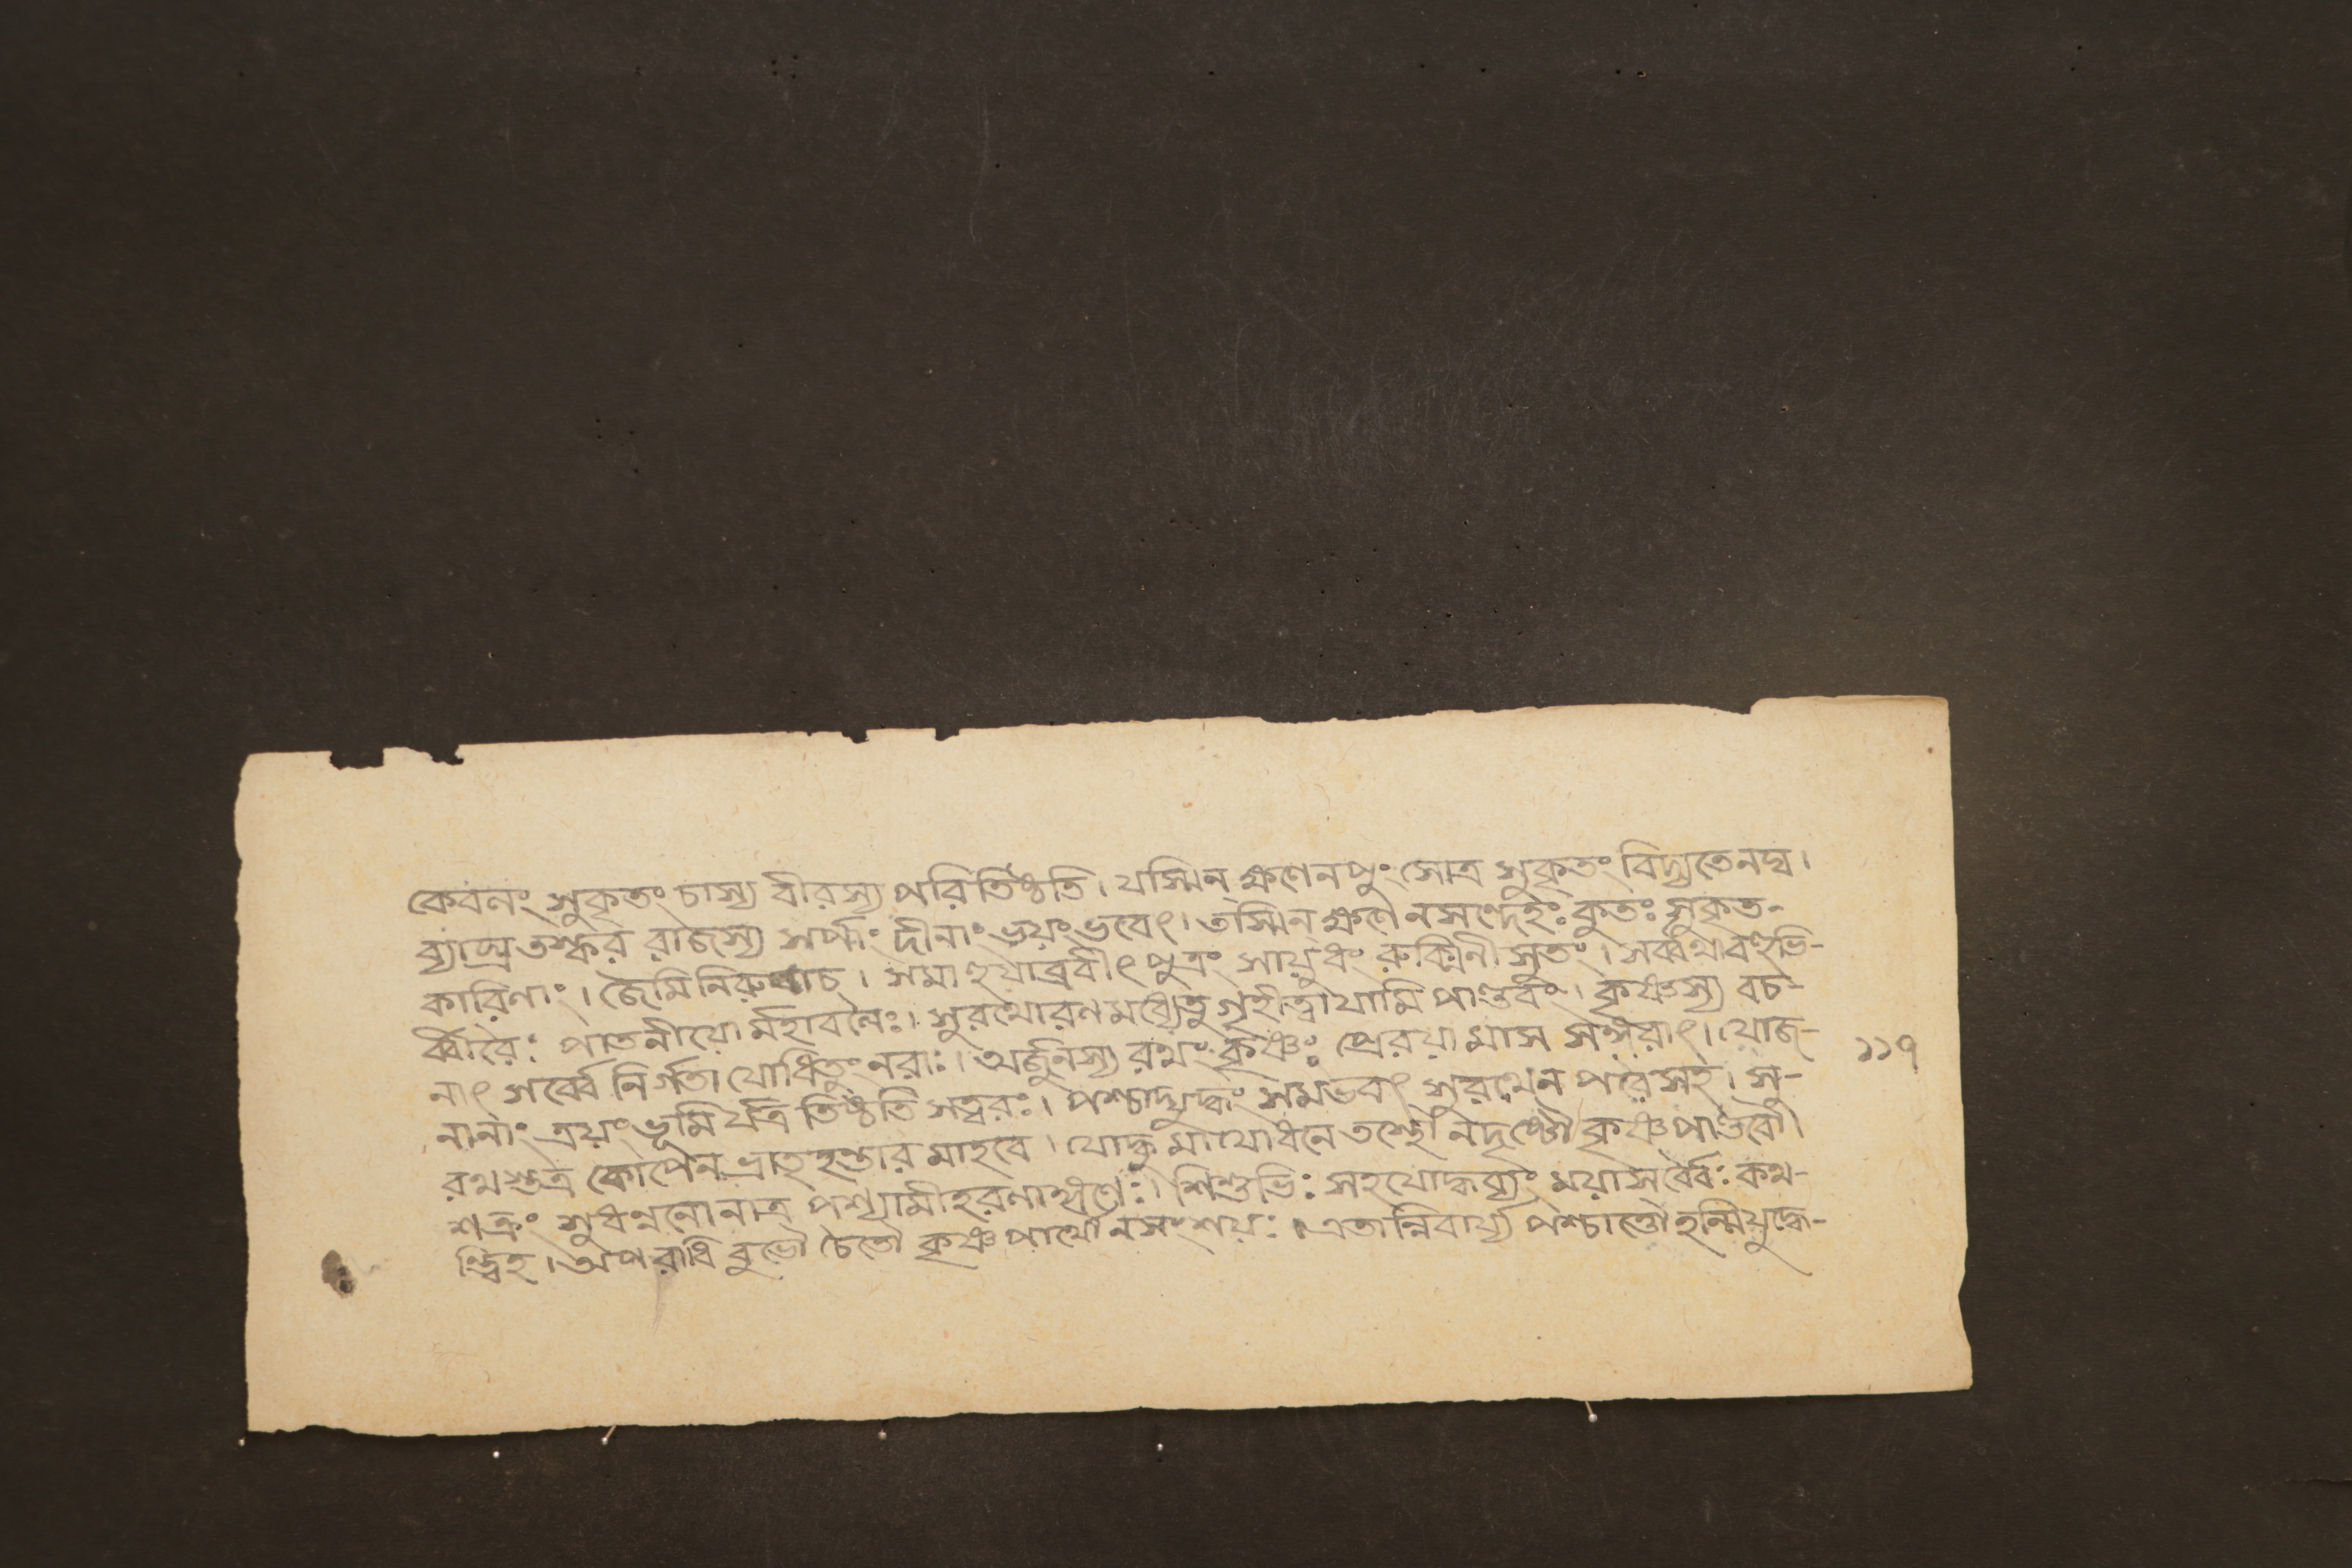 কেবলং সুকৃতং চাস্য বীরস্য পরিতিষ্ঠতি। যস্মিন্ ক্ষণে ন পুংসোত্র সুকৃতং বিদ্যতে নঘ।
ব্যাঘ্র তস্কর রাজস্য সর্পাং দীনাং ভয়ং ভবেৎ। তস্মিন্ ক্ষণে ন সন্দেহঃ কুতঃ সুকৃত-
কারিণাং। জৈমিনিরুবাচ। সমাহূয়াব্রবীৎ পুত্রং সায়ুধং রুক্মিনী সুতং। সর্ব্বথা বহুভি-
র্ব্বীরৈঃ পাতনীয়ো র্মহাবলৈঃ। সুরথো রণমধ্যেতু গৃহীত্বা যামি পাণ্ডবং। কৃষ্ণস্য বচ-
নাৎ সর্ব্বে নির্গতা যোধিতুং নরাঃ। অর্জুনস্য রথং কৃষ্ণঃ প্রেরয়ামাস সঙ্গরাৎ। যোজ-
নানাং ত্রয়ং ভূমি র্যত্র তিষ্ঠতি সত্বরঃ। পশ্চাদ্যুদ্ধং সমভবৎ সুরথেন পরৈ সহ। সু-
রথ স্তত্র কোপেন ভ্রাতৃ হন্তার মাহবে। যোদ্ধু মায়োধনে তস্থৌ ন দৃষ্টৌ কৃষ্ণ পাণ্ডবৌ।
শত্রুং সুধন্বনো নাত্র পশ্যামীহ রণার্থিণৈঃ। শিশুভিঃ সহ যোদ্ধব্যং ময়া সর্বৈঃ কথ-
ন্ত্বিহ। অপরাধি বুভৌ চৈতৌ কৃষ্ণ পার্থৌ ন সংশয়ঃ। এতান্নিবার্য্য পশ্চাত্তৌ হন্মি যুদ্ধে-
১১৭